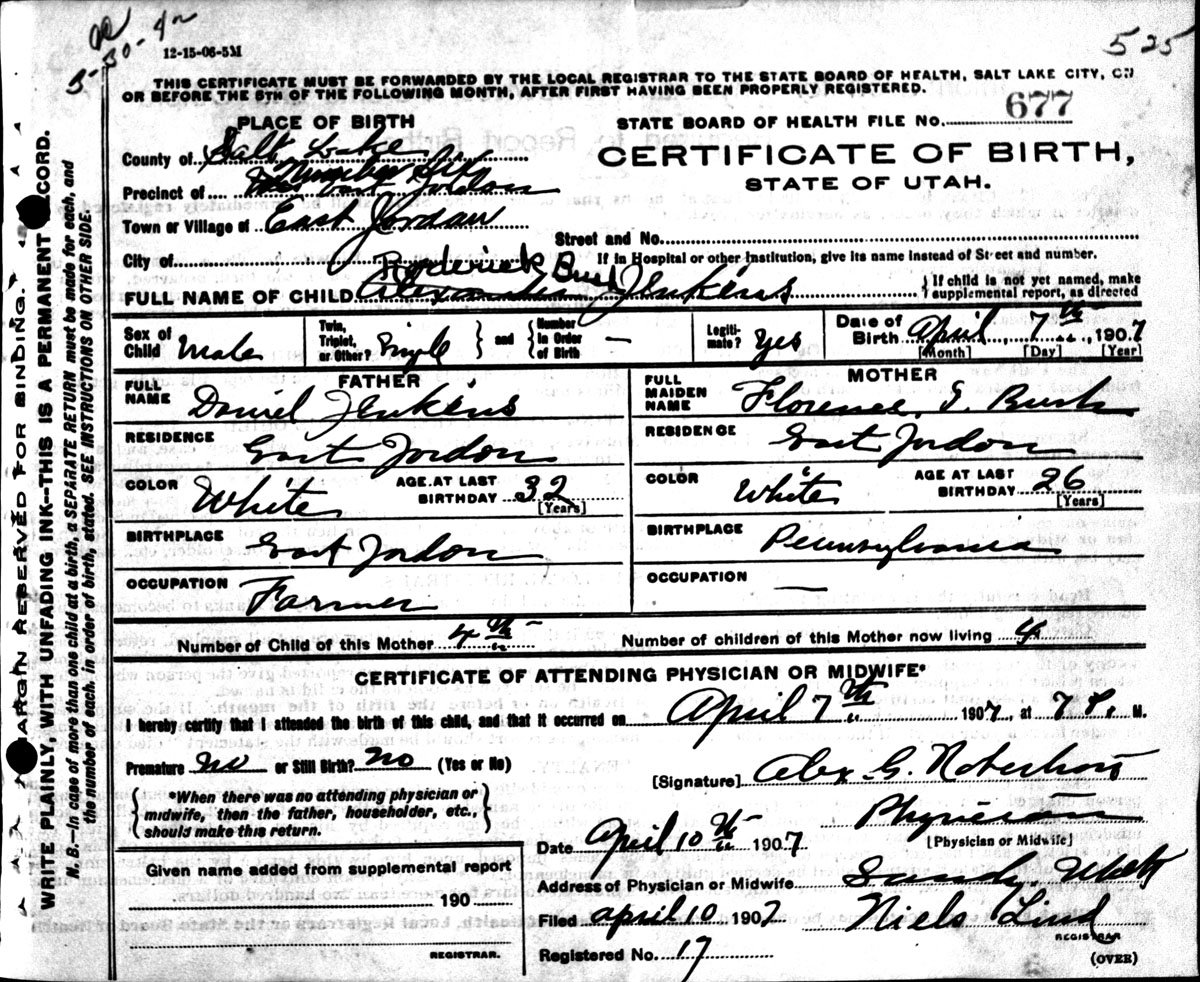 5-30-42
12-15-06-5M
525
THIS CERTIFICATE MUST BE FORWARDED BY THE LOCAL REGISTRAR TO THE STATE BOARD OF HEALTH, SALT LAKE CITY, ON
OR BEFORE THE 5TH OF THE FOLLOWING MONTH, AFTER FIRST HAVING BEEN PROPERLY REGISTERED.
PLACE OF BIRTH
STATE BOARD OF HEALTH FILE NO. 677
County of Salt Lake
CERTIFICATE OF BIRTH,
Precinct of Jordan
STATE OF UTAH.
Town or Village of East Jordan
Street and No.
City of
If in Hospital or other Institution, give its name instead of Street and number.
Roderick Bush
FULL NAME OF CHILD Alexander Jenkins
{ If child is not yet named, make
supplemental report, as directed
Sex of Child Male
Twin, Triplet, or Other? Single } and { Number in Order of Birth —
Legitimate? Yes
Date of Birth April 7th 1907
[Month] [Day] [Year]
FATHER
MOTHER
FULL NAME Daniel Jenkins
FULL MAIDEN NAME Florence E. Bush
RESIDENCE East Jordon
RESIDENCE East Jordon
COLOR White AGE AT LAST BIRTHDAY 32 [Years]
COLOR White AGE AT LAST BIRTHDAY 26 [Years]
BIRTHPLACE East Jordon
BIRTHPLACE Pennsylvania
OCCUPATION Farmer
OCCUPATION —
Number of Child of this Mother 4th
Number of children of this Mother now living 4
CERTIFICATE OF ATTENDING PHYSICIAN OR MIDWIFE*
I hereby certify that I attended the birth of this child, and that it occurred on April 7th 1907, at 7 P. M.
Premature No or Still Birth? No (Yes or No)
[Signature] Alex. G. Robertson
{ *When there was no attending physician or
midwife, then the father, householder, etc.,
should make this return. }
Physician
[Physician or Midwife]
Date April 10th 1907
Given name added from supplemental report
190
REGISTRAR.
Address of Physician or Midwife Sandy, Utah
Filed April 10 1907 Niels Lind
REGISTRAR
Registered No. 17
(OVER)
MARGIN RESERVED FOR BINDING.
WRITE PLAINLY, WITH UNFADING INK--THIS IS A PERMANENT RECORD.
N. B.--In case of more than one child at a birth, a SEPARATE RETURN must be made for each, and
the number of each, in order of birth, stated. SEE INSTRUCTIONS ON OTHER SIDE.